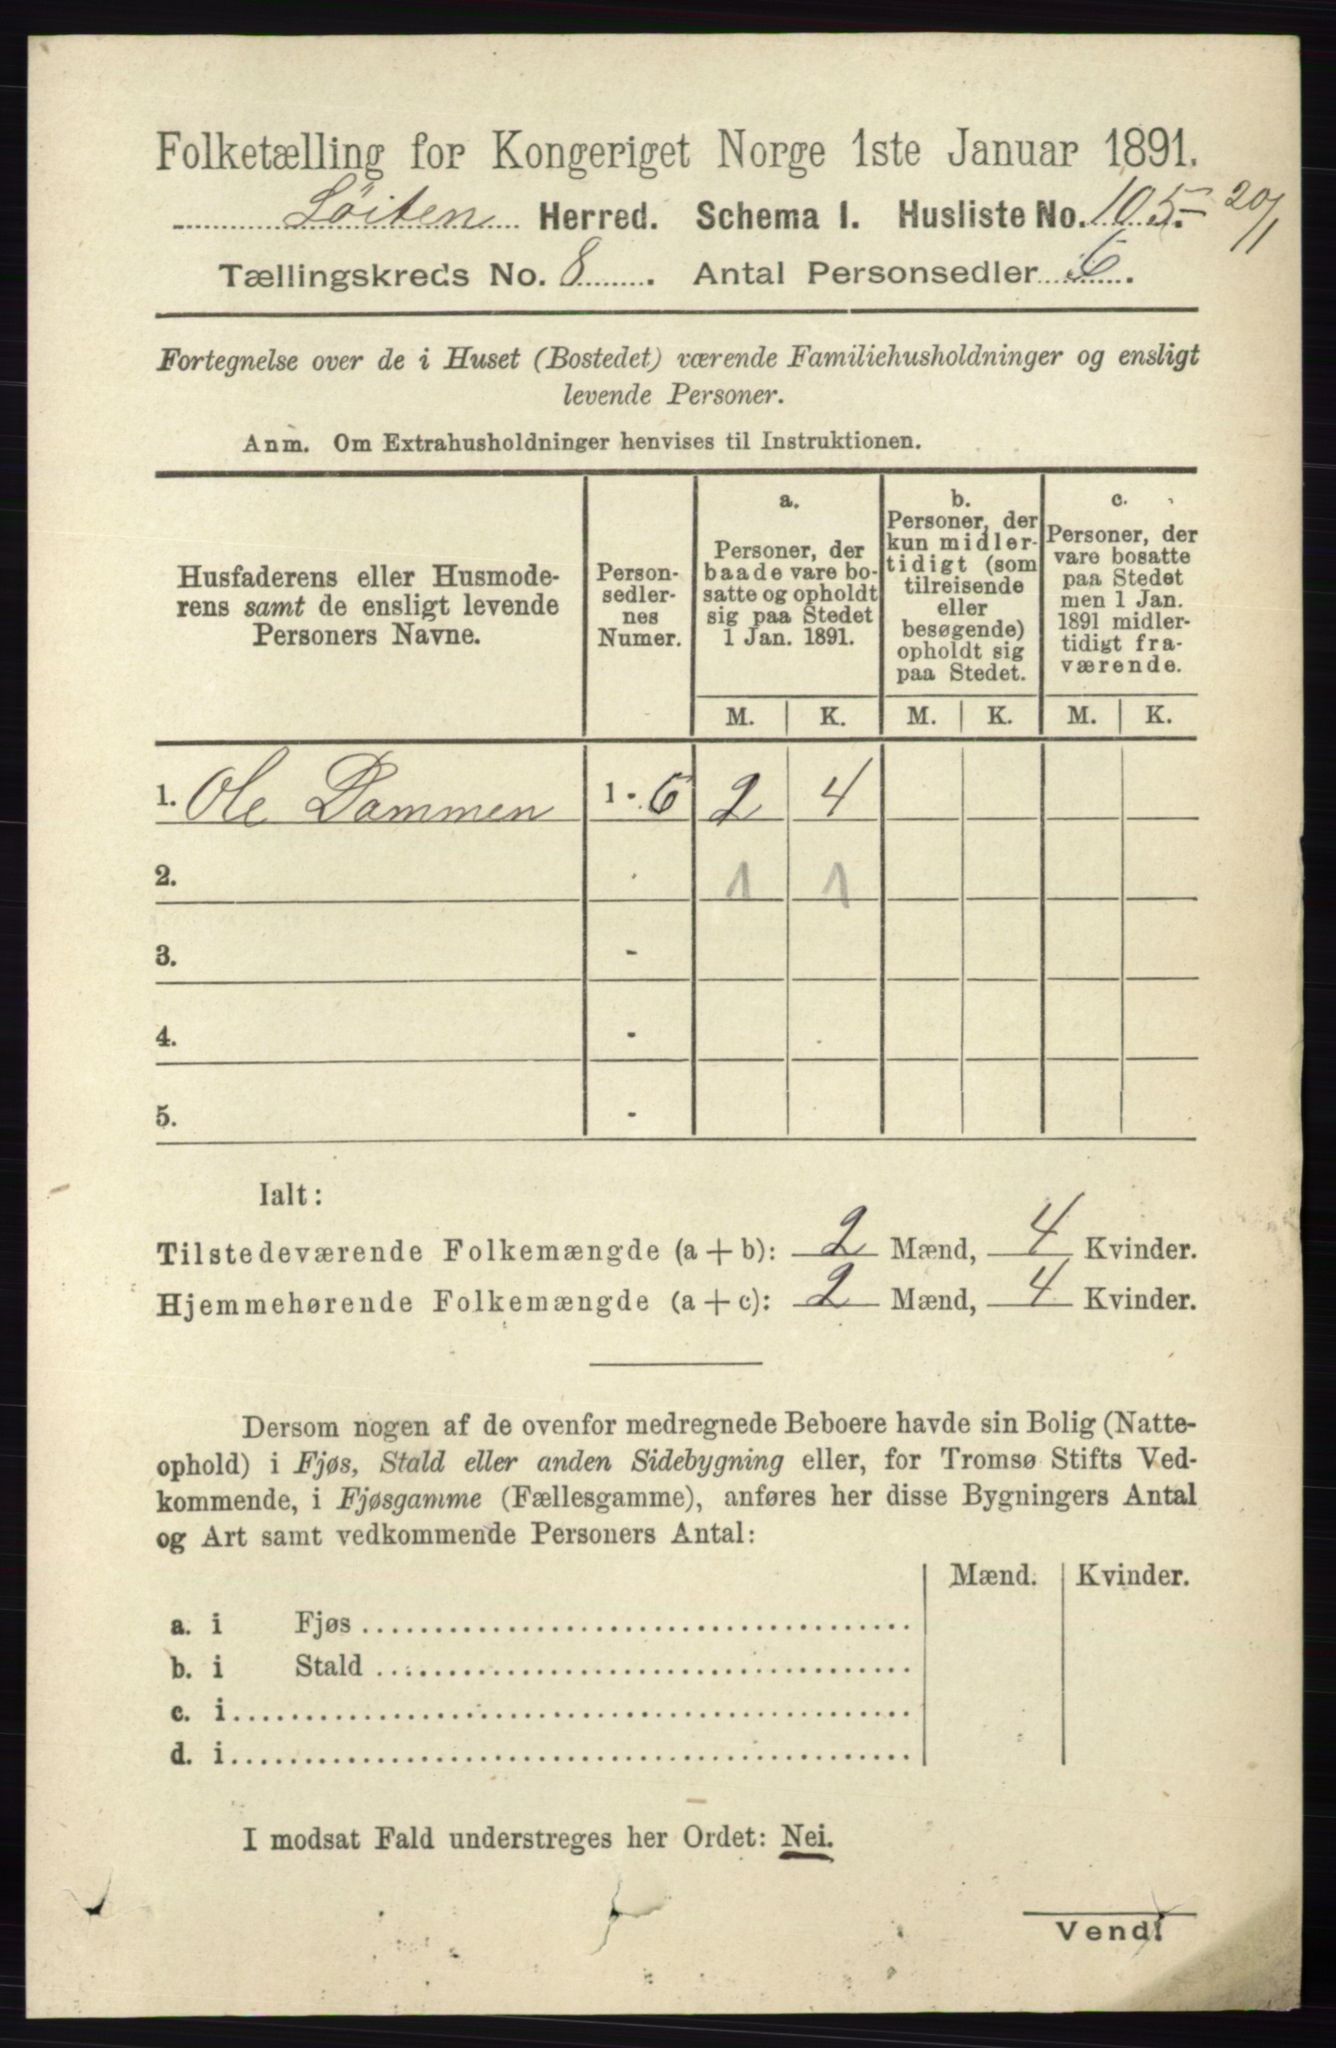 Folketælling for Kongeriget Norge 1ste Januar 1891.
Löiten Herred. Schema I. Husliste No. 105. 20/1
Tællingskreds No. 8. Antal Personsedler 6.
Fortegnelse over de i Huset (Bostedet) værende Familiehusholdninger og ensligt
levende Personer.
Anm. Om Extrahusholdninger henvises til Instruktionen.
Husfaderens eller Husmode-
rens samt de ensligt levende
Personers Navne.
Person-
sedler-
nes
Numer.
a.
Personer, der
baade vare bo-
satte og opholdt
sig paa Stedet
1 Jan. 1891.
b.
Personer, der
kun midler-
tidigt (som
tilreisende
eller
besøgende)
opholdt sig
paa Stedet.
c.
Personer, der
vare bosatte
paa Stedet
men 1 Jan.
1891 midler-
tidigt fra-
værende.
M. K. M. K. M. K.
1. Ole Dammen 1 - 6 2 4
2. 1 1
3. -
4. -
5. -
Ialt:
Tilstedeværende Folkemængde (a + b): 2 Mænd, 4 Kvinder.
Hjemmehørende Folkemængde (a + c): 2 Mænd, 4 Kvinder.
Dersom nogen af de ovenfor medregnede Beboere havde sin Bolig (Natte-
ophold) i Fjøs, Stald eller anden Sidebygning eller, for Tromsø Stifts Ved-
kommende, i Fjøsgamme (Fællesgamme), anføres her disse Bygningers Antal
og Art samt vedkommende Personers Antal:
Mænd. Kvinder.
a. i Fjøs
b. i Stald
c. i
d. i
I modsat Fald understreges her Ordet: Nei.
Vend!